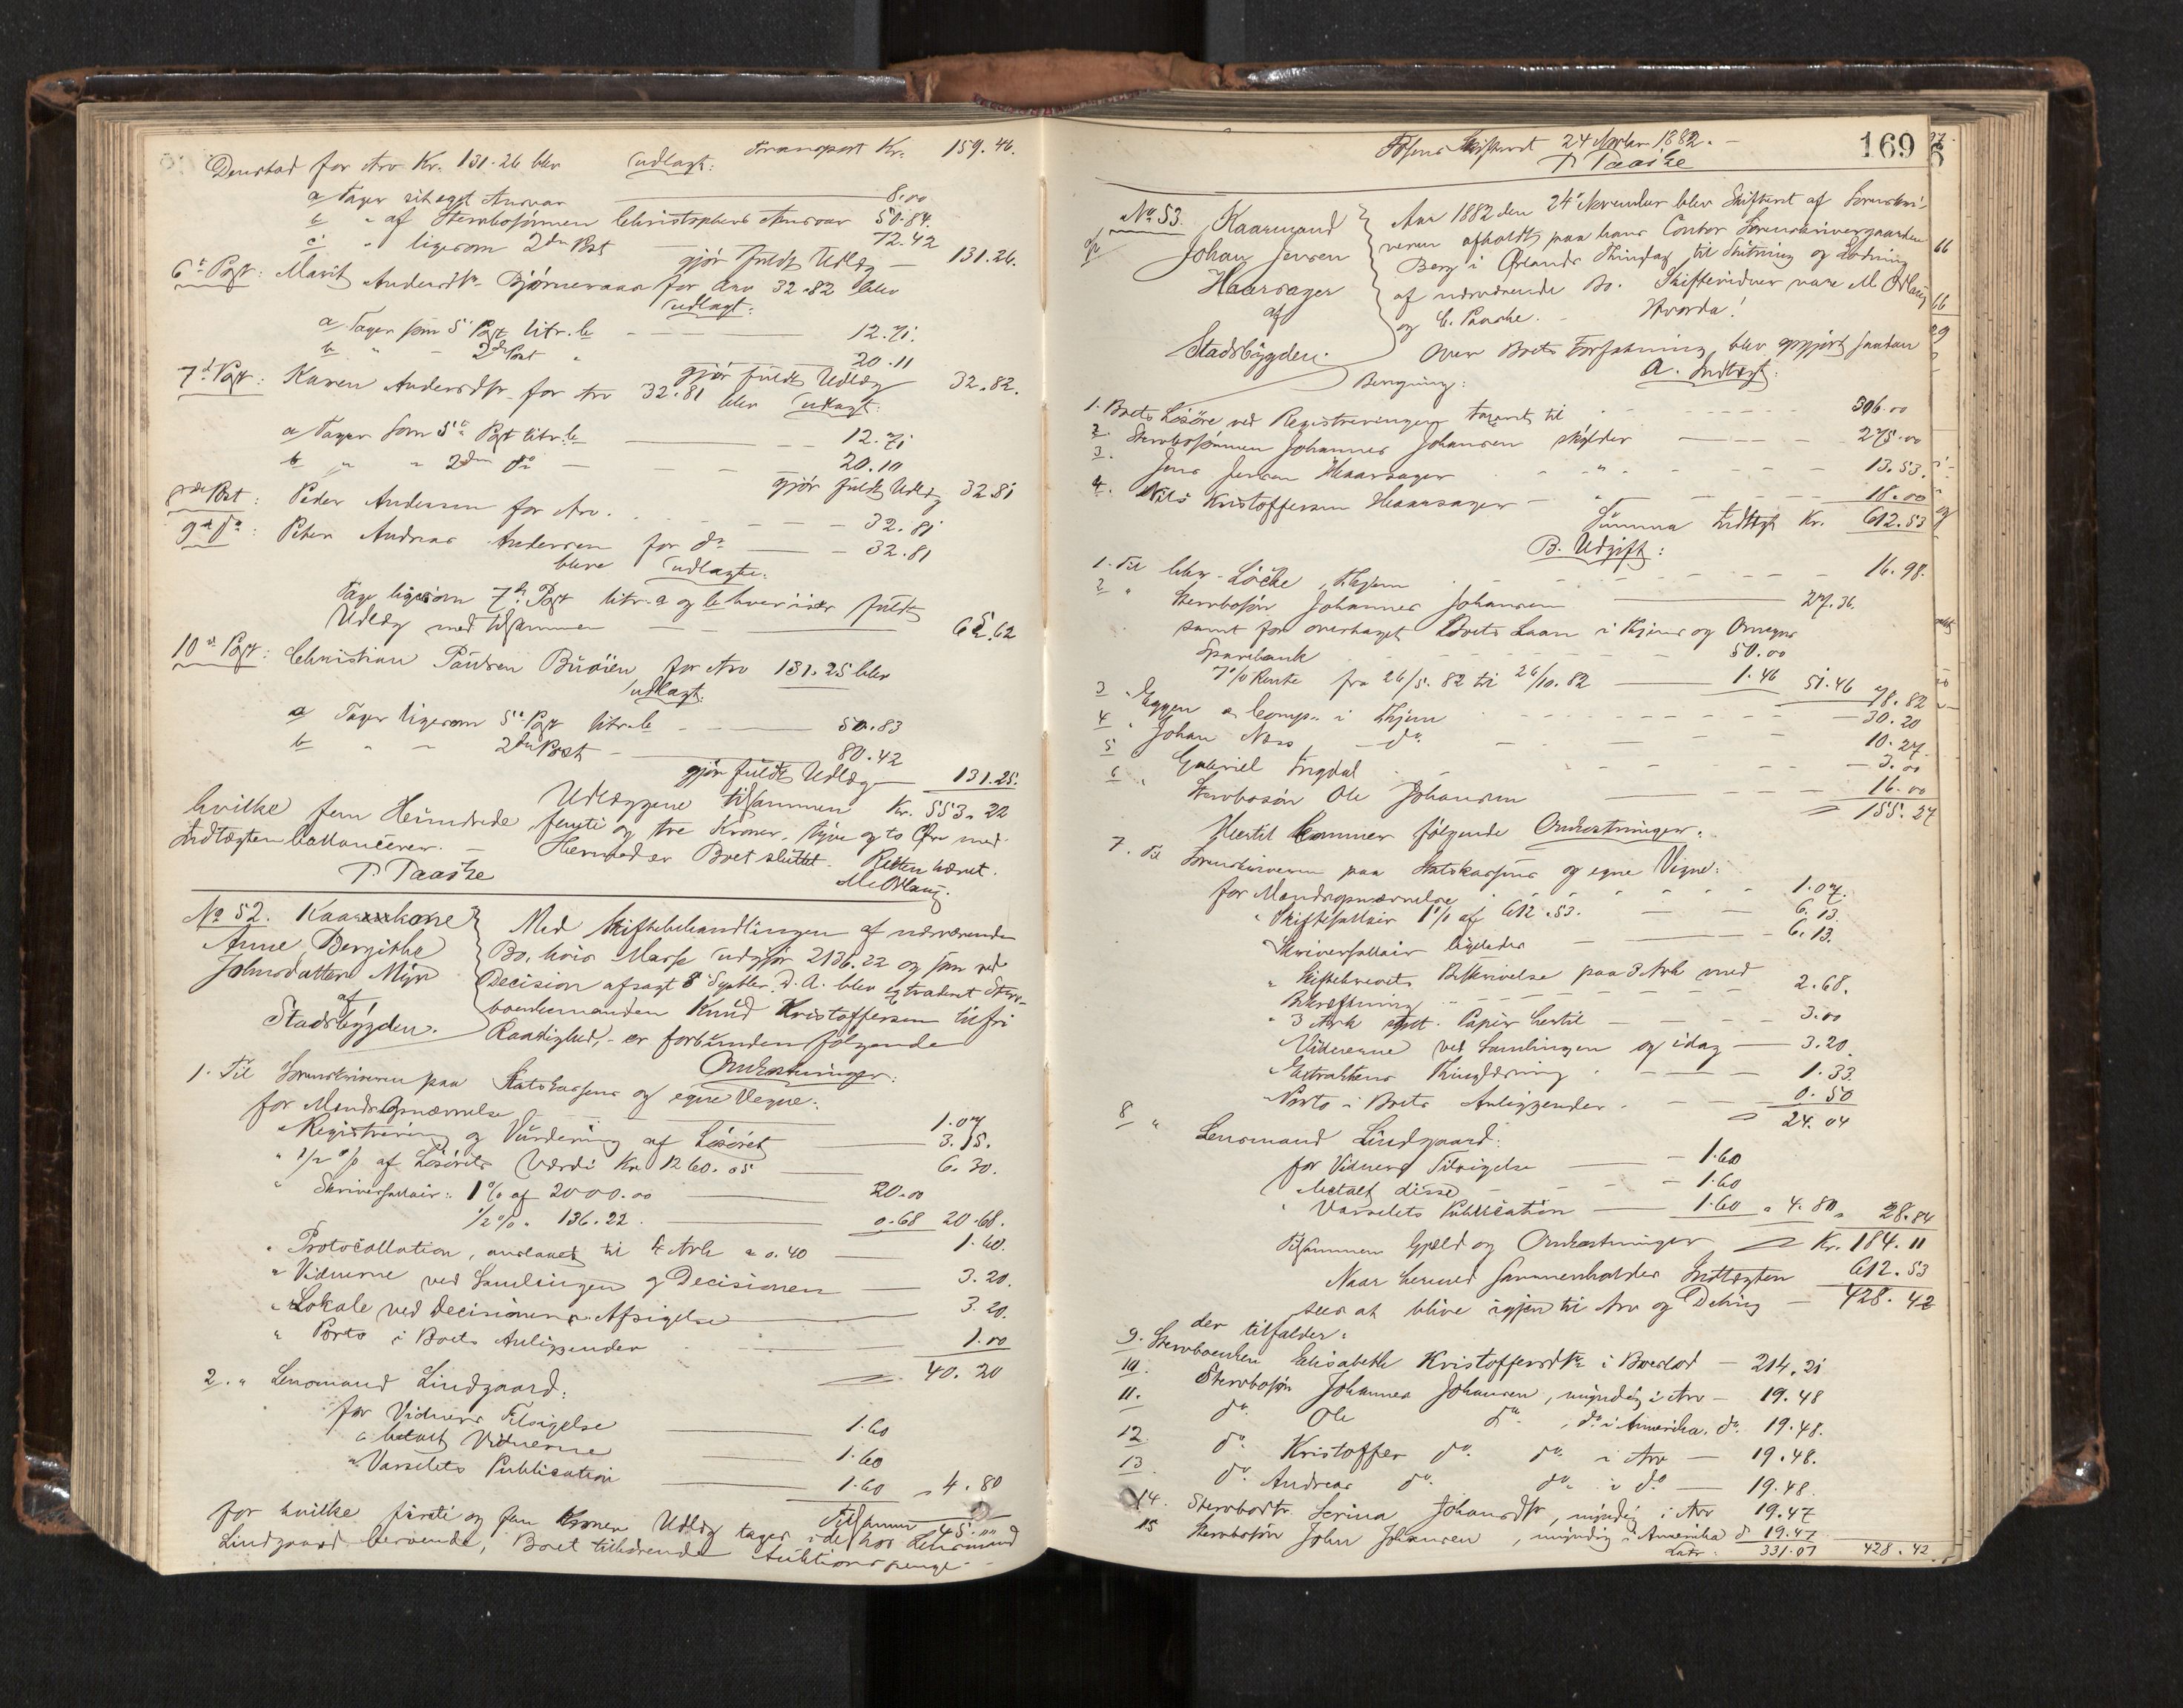 Transport Kr. 159.46.
Denstad for Arv Kr. 131.26 blev udlagt:
a Tager sit eget Ansvar 8.00
b " af Sterbosønnen Christophers Ansvar 50.84.
c " ligesom 2den Post 72.42
gjør fuldt Udlæg 131.26.
6te Post: Marit Andersdtr. Bjørnevaas for Arv 32.82 blev
udlagt:
a Tager som 5te Post litr. b 12.71.
b " - 2den Post " 20.11
gjør fuldt Udlæg 32.82.
7de Post: Karen Andersdtr. for Arv 32.81 blev udlagt:
a Tager som 5te Post litr. b 12.71
b " " 2den do 20.10
gjør fuldt Udlæg 32.81
Post: Peder Andersen for Arv. 32.81
9de do: Peter Andreas Andersen for do 32.81
bleve udlagte:
Tage ligesom 7de Post litr. a og b hver især fuldt
Udlæg med tilsammen 65.62
10de Post: Christian Paulsen Buøien for Arv 131.25 blev
udlagt:
a Tager ligesom 5te Post litr. b 50.83
b " - 2den Post 80.42
gjør fuldt Udlæg 131.25.
Udlæggene tilsammen Kr. 553.22
hvilke fem Hundrede femti og tre Kroner, tyve og to Øre med
Indtægten ballancerer. — Hermed er Boet sluttet. Retten hævet.
P. Paaske
No 52. Kaarkone
Anne Bergithe
Johnsdatter Myr
af
Stadsbygden.
Med Skiftebehandlingen af nærværende
Bo, hvis Masse udgjør 2136.22 og som ved
Decision afsagt 8 Septbr. D. A. blev extraderet Sterv-
boenkemanden Knud Kristoffersen til fri
Raadighed, - er forbunden følgende
Omkostninger:
1. Til Sorenskriveren paa Statskassens og egne Vegne:
for Mandsopnævnelse 1.07
" Registrering og Vurdering af Løsøret 3.15.
" 1/2 % af Løsørets Værdi Kr. 1260.05 6.30.
" Skriversallair: 1% af 2000.00 20.00
1/2 % " 136.22. 0.68 20.68.
" Protocollation, anslaaet til 4 Ark a 0.40 1.60.
" Vidnerne ved Samlingen og Decisionen 3.20.
" Lokale ved Decisionens Afsigelse 3.20.
" Porto i Boets Anliggender 1.00
40.20
2. " Lensmand Lindgaard:
for Vidners Tilsigelse 1.60
" betalt Vidnerne 1.60
" Varselets Publication 1.60 4.80
Tilsammen 45. ""
for hvilke førti og fem Kroner Udlæg tages i de hos Lensmand
Lindgaard beroende, Boet tilhørende Auktionspenge.
169
Fosens Skifteret 24 Novbr 1882. —
P. Paaske
No 53. Kaarmand
Johan Jensen
Haarsager
af
Stadsbygden.
Aar 1882 den 24 November blev Skifteret af Sorenskri-
veren afholdt paa hans Contor Sorenskrivergaarden
Berg i Ørlands Thinglag til Slutning og Lodning
af nærværende Bo. Skiftevidner vare
og C. Paaske. — Hvorda!
Over Boets Forfatning blev opgjort saadan
Beregning:
A. Indtægt:
1. Boets Løsøre ved Registreringen taxeret til 306.00
2. Stervbosønnen Johannes Johansen skylder 275.00
3. Jens Jensen Haarsager " 13.53.
4. Nils Kristoffersen Haarsager " 18.00
Summa Indtægt Kr. 612.53
B. Udgift:
1. Til Chr. Løcke, Thjem 16.98.
2 " Stervbosøn Johannes Johansen 27.36.
samt for overtaget Boets Laan i Thjems og Omegns
Sparebank 50.00
7% Rente fra 26/5. 82 til 26/10. 82 1.46 51.46 78.82
3 " Eggen & Comp. i Thjem 30.20
4 " Johan Næss, do 10.27.
5 Gabriel Ingdal 3.00
6 " Stervbosøn Ole Johansen 16.00
155.27
Hertil kommer følgende Omkostninger:
7. Til Sorenskriveren paa Statskassens og egne Vegne:
for Mandsopnævnelse 1.07.
" Skiftesallair 1% af 612.53. 6.13.
Skriversallair ligeledes 6.13.
" Skiftebrevets Beskrivelse paa 3 Ark med
Bekræftning 2.68.
" 3 Ark stplt. Papir hertil 3.00
Vidnerne ved Samlingen og idag 3.20.
Extraktens Thinglæsning 1.33.
Porto i Boets Anliggender 0.50
24.04
8 " Lensmand Lindgaard:
for Vidners Tilsigelse 1.60
" betalt disse 1.60
" Varselets Publication 1.60 " 4.80 " 28.84
Tilsammen Gjæld og Omkostninger Kr. 184.11
Naar hermed sammenholdes Indtægten 612.53
sees at blive igjen til Arv og Deling 428.42
der tilfalder:
9. Stervboenken Elisabeth Kristoffersdtr i Boeslod 214.21
10. Stervbosøn Johannes Johansen, myndig i Arv 19.48
11. do Ole do, do i Amerika, do 19.48.
12. do Kristoffer do do i Arv 19.48.
13. do Andreas do do i do 19.48.
14. Stervbodtr Serina Johansdtr, myndig i Arv 19.47
15 Stervbosøn John Johansen, myndig i Amerika do 19.47
Latr. 331.07 428.42